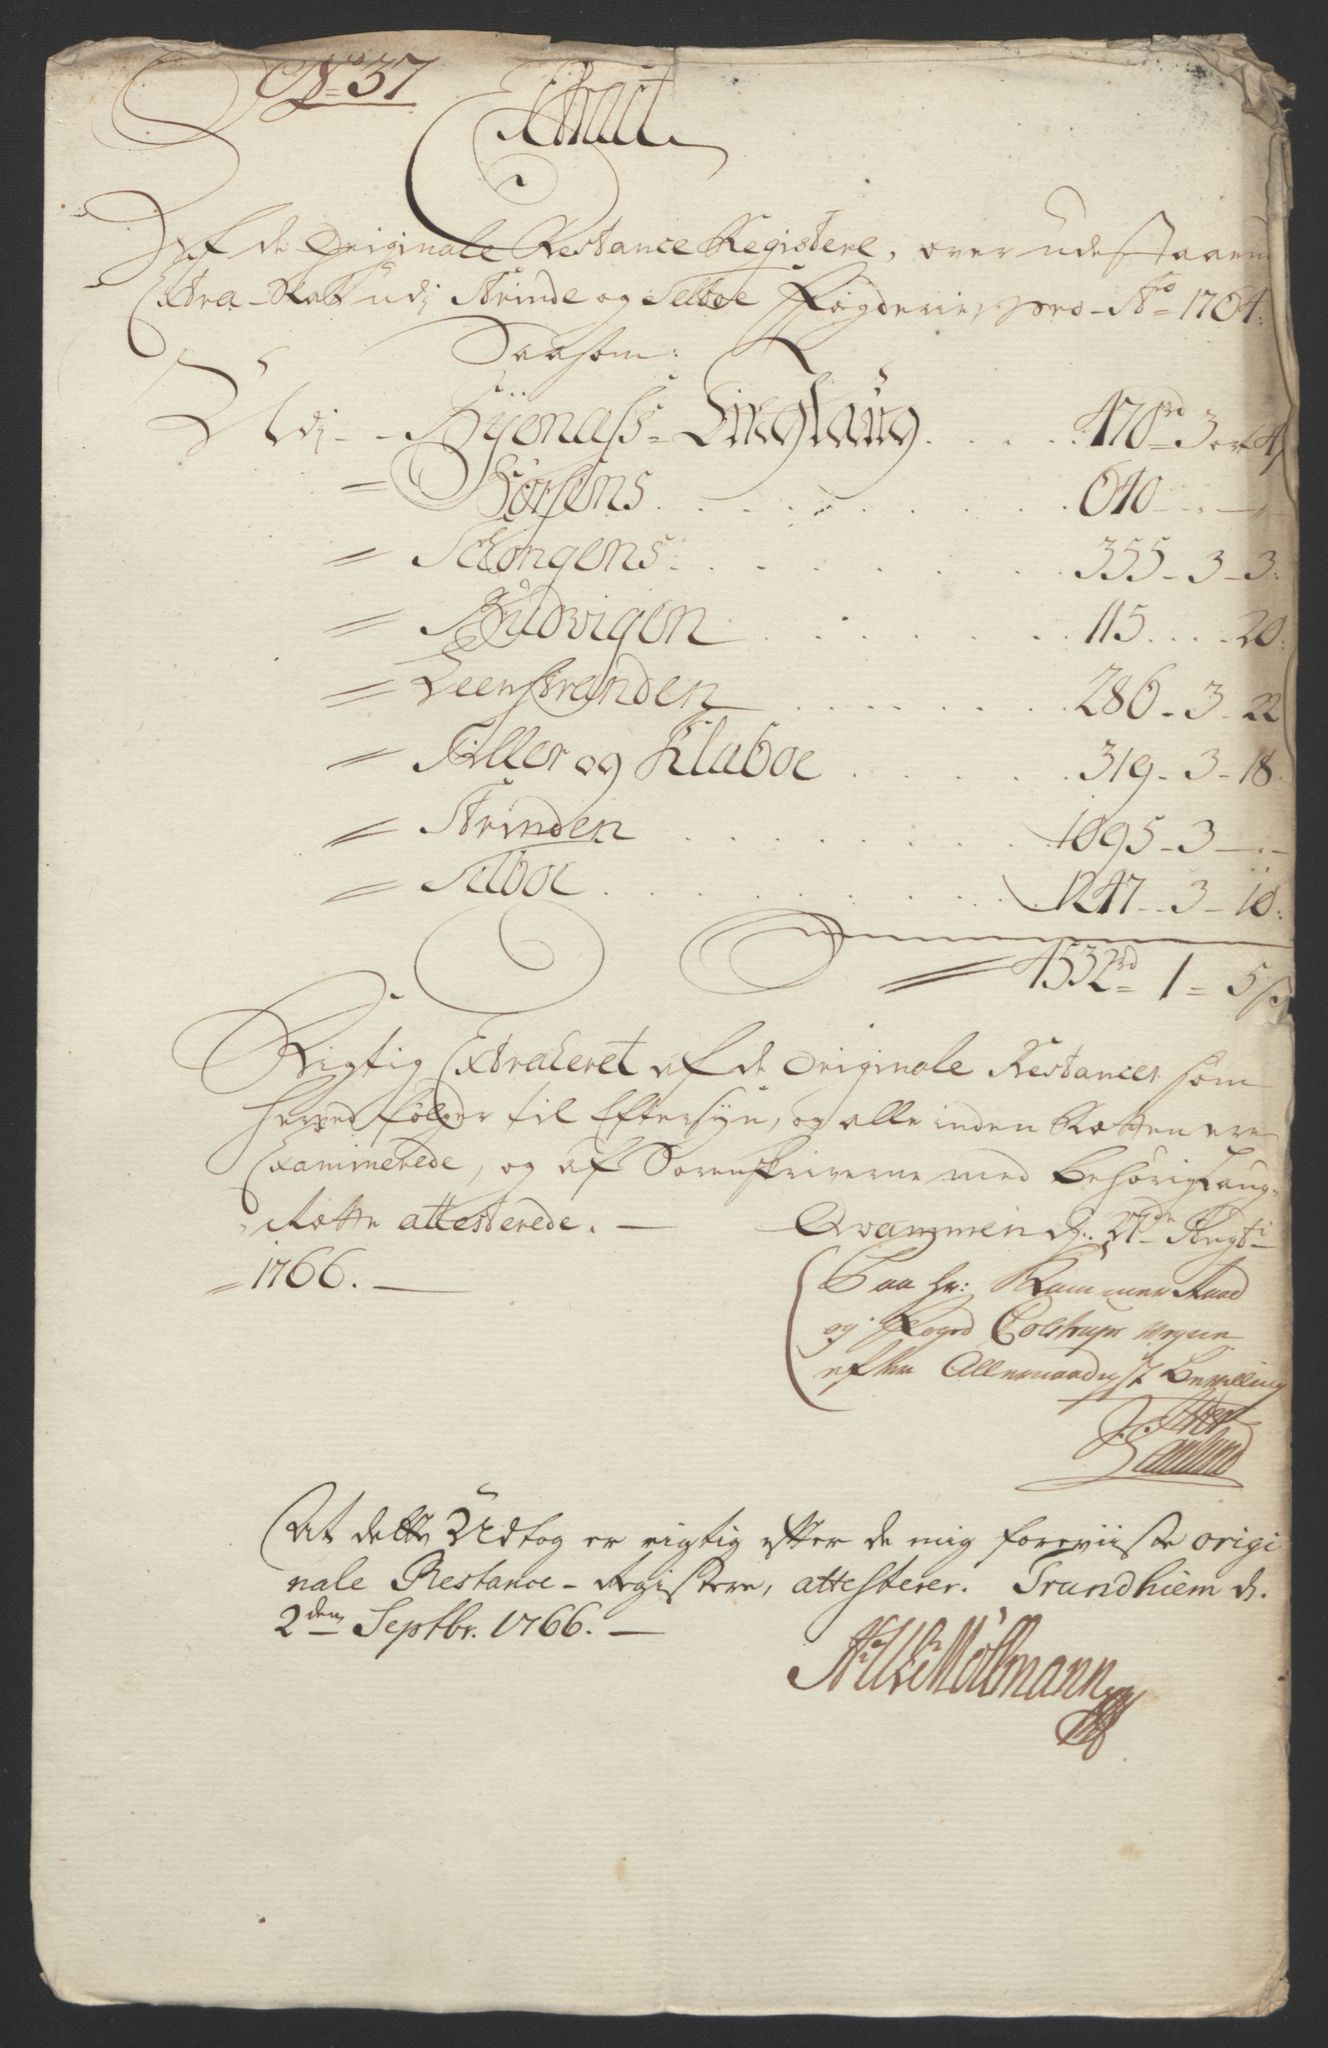 No 37
Extract
Af de Originale Restance Registere, over udestaaen
Extra-Skat udj Strinde og Selboe Fogderie, pro Ao 1764:
Saasom:
Udj - Byenæss Tinglaug . . . . 470rd 3 ort 4
= Børsens . . . . . . 640 - -
= Schongens: . . . . . . 355 - 3 - 3:
= Budvigen . . . . . 115 . . . 20:
= Leenstranden . . . . . 286 - 3 - 22
= Tiller og Klæboe . . . . 319 - 3 - 18.
= Strinden . . . . . . 1095 - 3 - -
= Selboe . . . . . . 1247 - 3 - 10:
= 4532rd = 1 = 5 s
Rigtig Extraheret af de Originale Restancer som
herved følger til Eftersyn, og alle inden Retten ere
Examinerede, og af Sorenskriverne med Behørig Laug-
Rætte attesterede. — Qvammen d. 27de Augti
= 1766. —
Paa hr: Kammer Raad
og Foged Colstrups vegne
efter Allernaadigst Bevilling
At dette Udtog er rigtig efter de mig foreviiste origi
nale Restance-Registere, attesterer. Trundhiem d.
2den Septbr. 1766. —
Möllmann